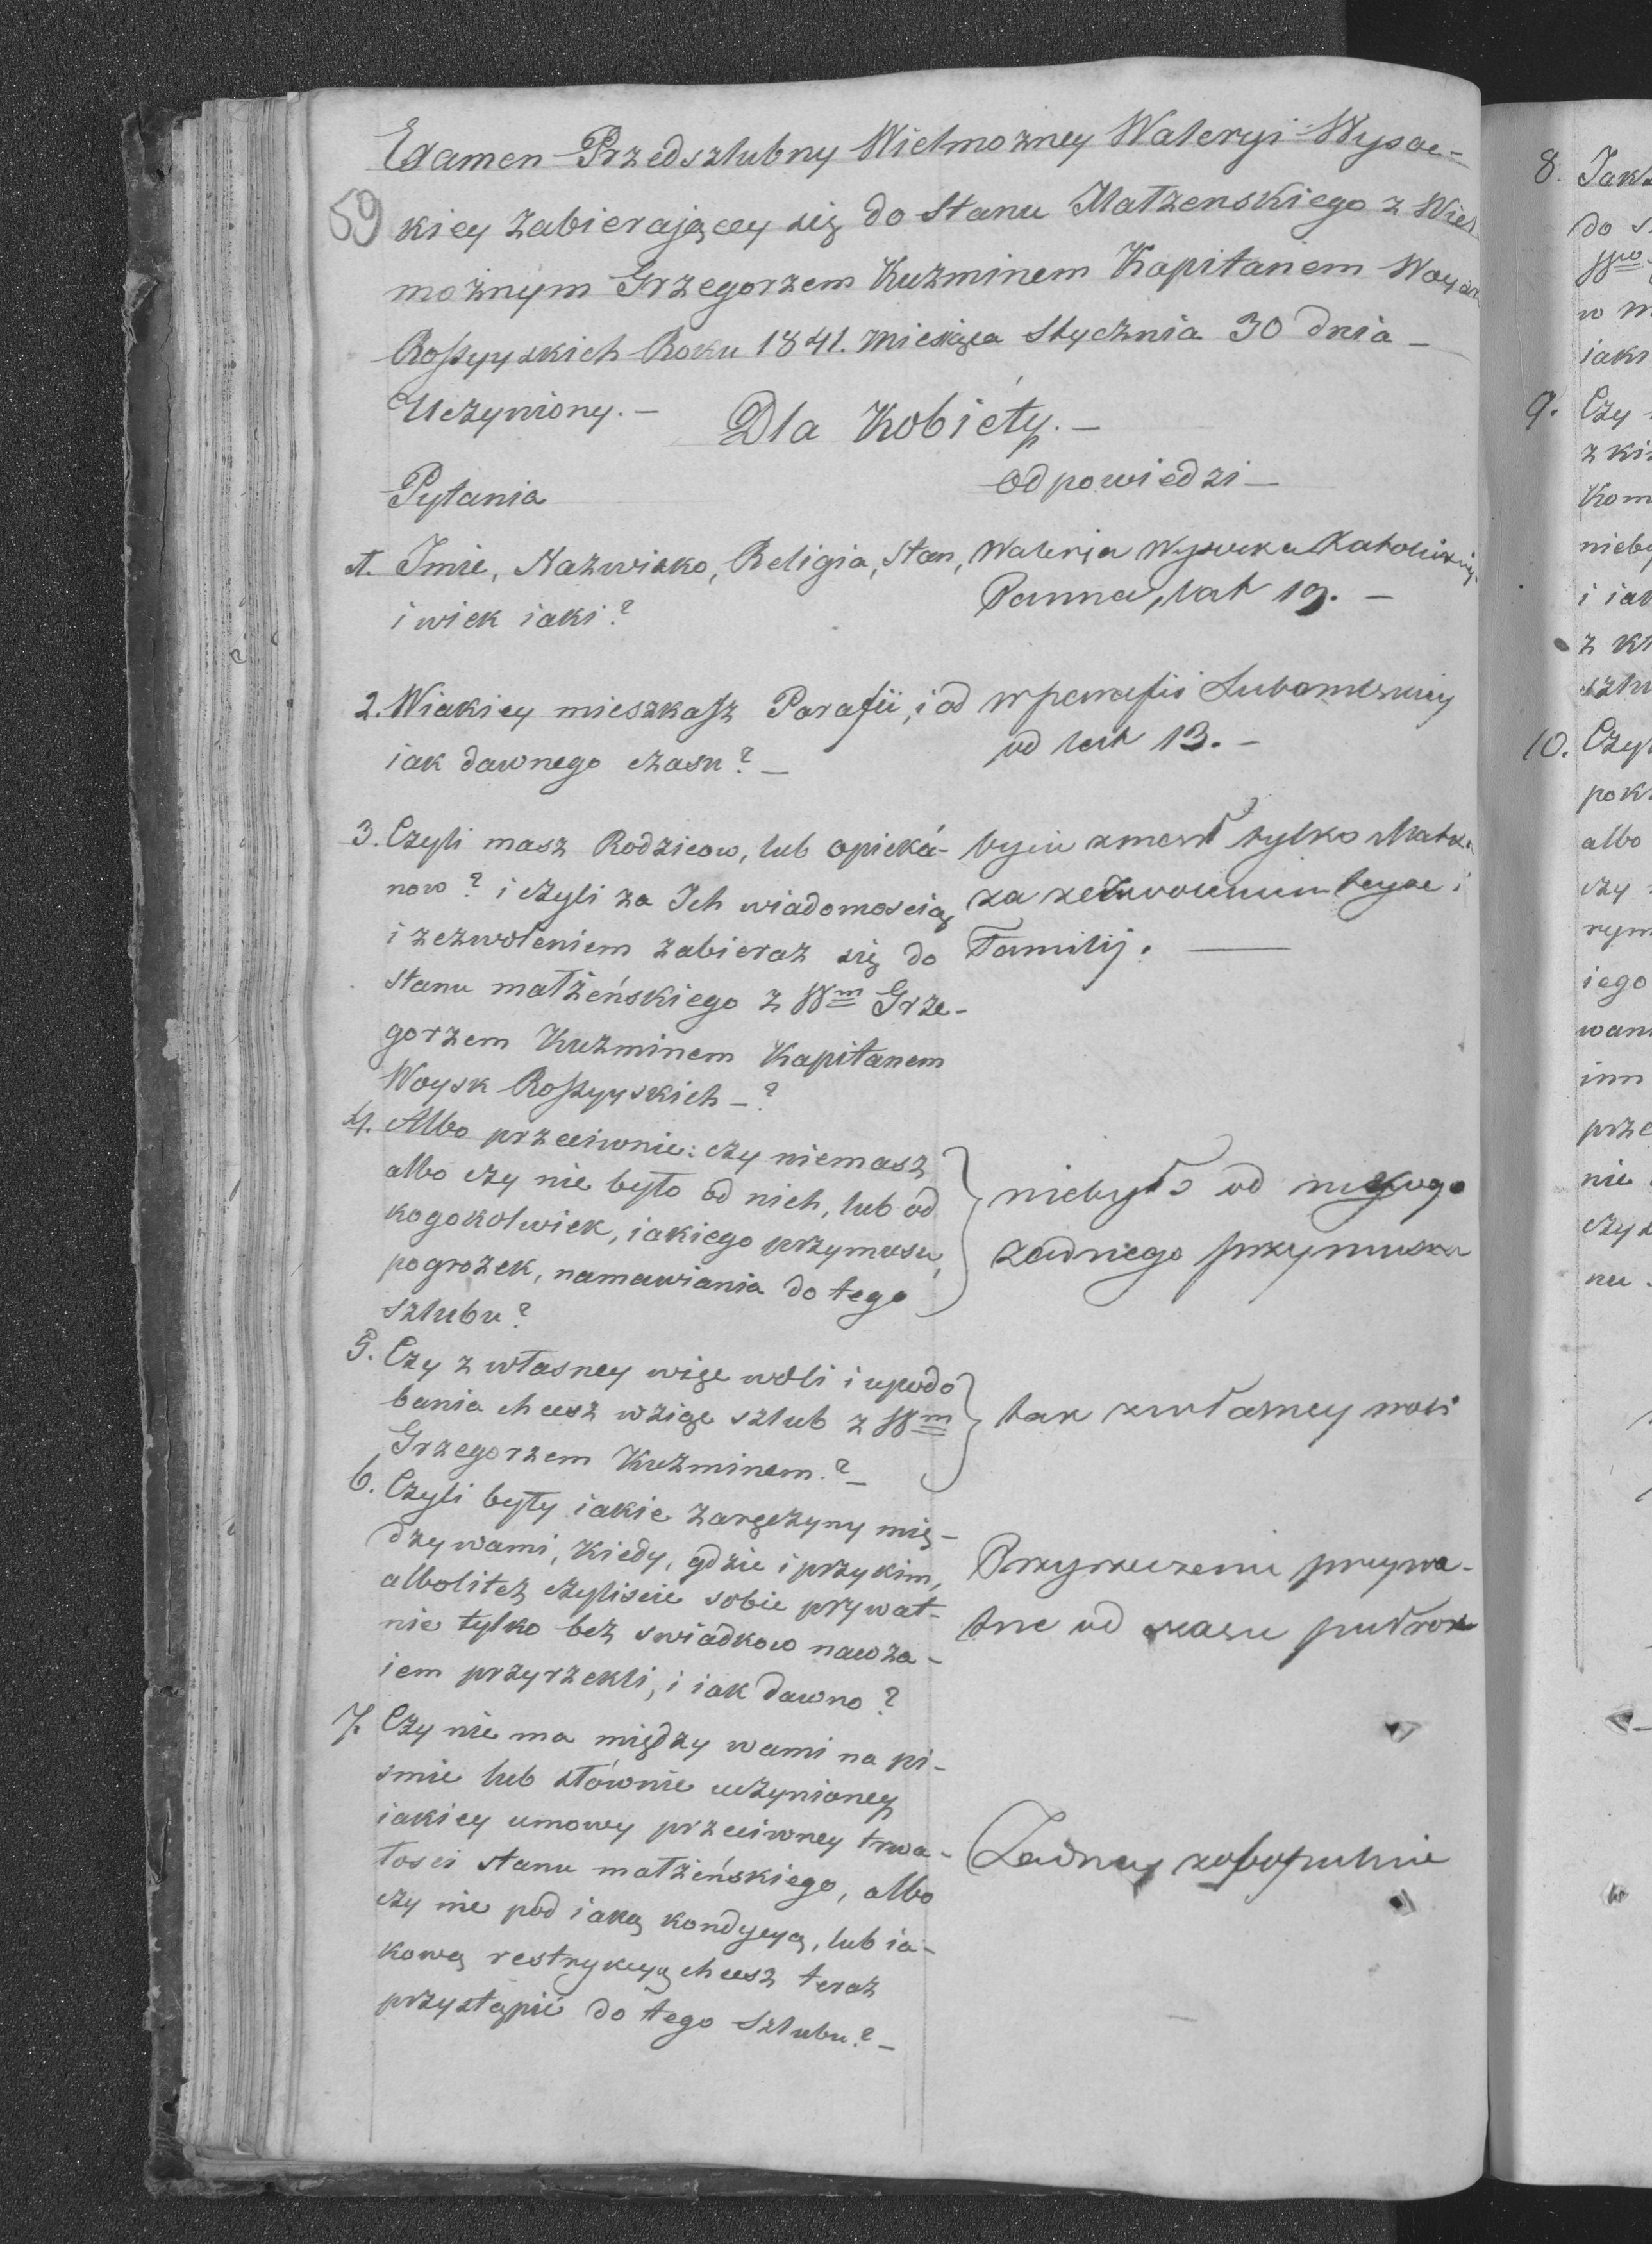 Examen Przedszlubny Wielmozney Waleryi Wysoc-
59
kiey Zabierającey się do Stanu Matzenskiego z Wiel
możnym Grzegorzem Kuzminem Kapitanem Woysk
Rossyyskich Roku 1841. Miesiąca Stycznia 30 dnia -
Uczyniony. -
Dla Kobiéty. -
Pytania
Odpowiedzi -
1. Imie, Nazwisko, Religia, Stan,
i wiek iaki?
Walerja Wysocka
Panna, lat 19. -
2. Wiakiey mieszkasz Parafii, i od
iak dawnego czasu? -
w parafii
od lat 13. -
3. Czyli masz Rodzicow, lub opieká-
now? i czyli za Ich wiadomoscią
i zezwoleniem zabieraz się do
stanu małżeńskiego z Wm Grze-
gorzem Kuzminem Kapitanem
Woysk Rossyyskich - ?
tylko Matka
za zezwoleniem teyże i
Familij. -
4. Albo przeciwnie: czy niemasz
albo czy nie było od nich, lub od
kogokolwiek, iakiego przymusu,
pogrozek, namawiania do tego
szlubu?
niebyło od nikogo
żadnego przymusu
5. Czy z własney więc woli i upodo
bania chcesz wziąc szlub z Wm
Grzegorzem Kuzminem? -
tak z własney woli
6. Czyli były iakie zaręczyny mię-
dzy wami, Kiedy, gdzie i przy kim,
albolitez czyliscie sobie prywat-
nie tylko bez swiadkow nawza-
iem przyrzekli, i iak dawno?
Przyrzeczenie prywa-
tne od czasu
7. Czy nie ma między wami na pi-
smie lub słównie uczynioney
iakiey umowy przeciwney trwa-
łosci stanu małżeńskiego, albo
czy nie pod iaką kondycyą, lub ia-
kową restrykcyą chcesz teraz
przystąpić do tego Szlubu? -
Żadney
8. Jak
do s
w m
iaki
9. Czy
z ki
Kom
nieby
i iak
z kt
szlu
10. Czyl
pok
albo
czy
rym
iego
wan
inn
prze
nie
czy z
nu